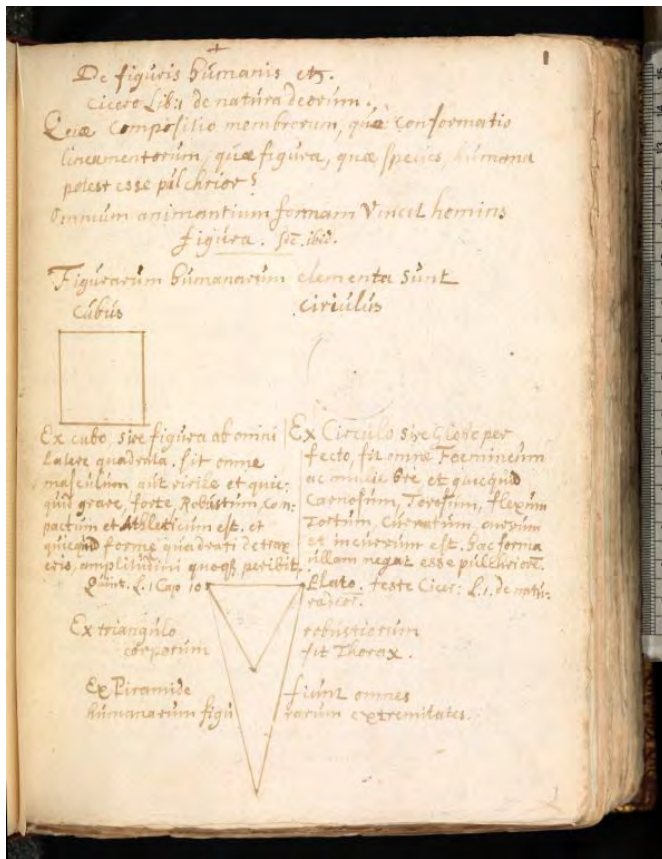 1
De figuris humanis etc.
Cicero Lib: 1 de natura deorum.
Quae Compositio membrorum, quae Conformatio
lineamentorum, quae figura, quae species, humana
potest esse pulchrior?
Omnium animantium formam Vincit hominis
figura. idē. ibid.
Figurarum humanarum elementa Sunt
Cubus
Circulus
Ex cubo, sive figura ab omni
Latere quadrata. fit omne
masculum aut virile et quic:
quid grave, forte, Robustum, Com:
pactum et Athleticum est. et
quicquid formae quadrati detrax
eris, amplitudini quoqz peribit.
Quint. L. 1 Cap 10
Ex Circulo Sive Globo per
fecto, fit omne Foemineum
ac muliebre, et quicquid
Carnosum, Torosum, flexum
Tortum, Curvatum,
et incurvum est. hac forma
ullam negat esse pulchriorē.
Plato. teste Cicer: L. 1. de natu:
ra deor.
Ex triangulo
corporum
robustiorum
fit Thorax.
Ex Piramide
humanarum figu
fiunt omnes
rarum extremitates.